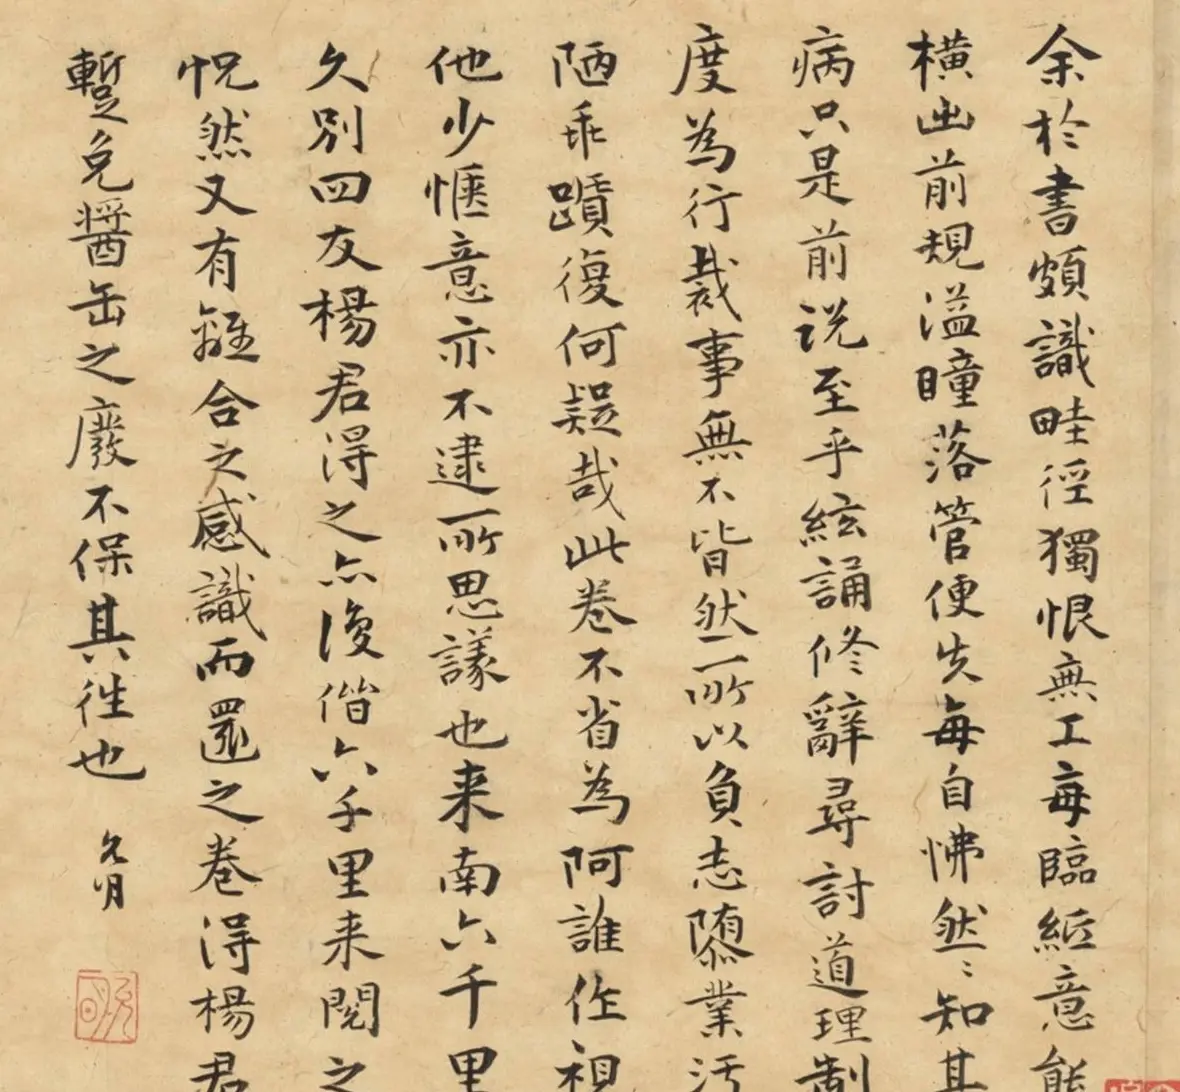 余於書頗識畦徑獨恨無工每臨紙意態
橫出前規溢瞳落管便失每自怫然〻知其
病只是前説至乎絃誦修辭尋討道理制
度為行裁事無不皆然一所以負志隳業汚
陋乖蹟復何疑哉此卷不省為阿誰作視
他少愜意亦不逮一所思議也来南六千里
久別四友楊君得之亦復偕六千里来閲之
怳然又有離合之感識而還之卷得楊君
蹔免醬缶之廢不保其往也
允明